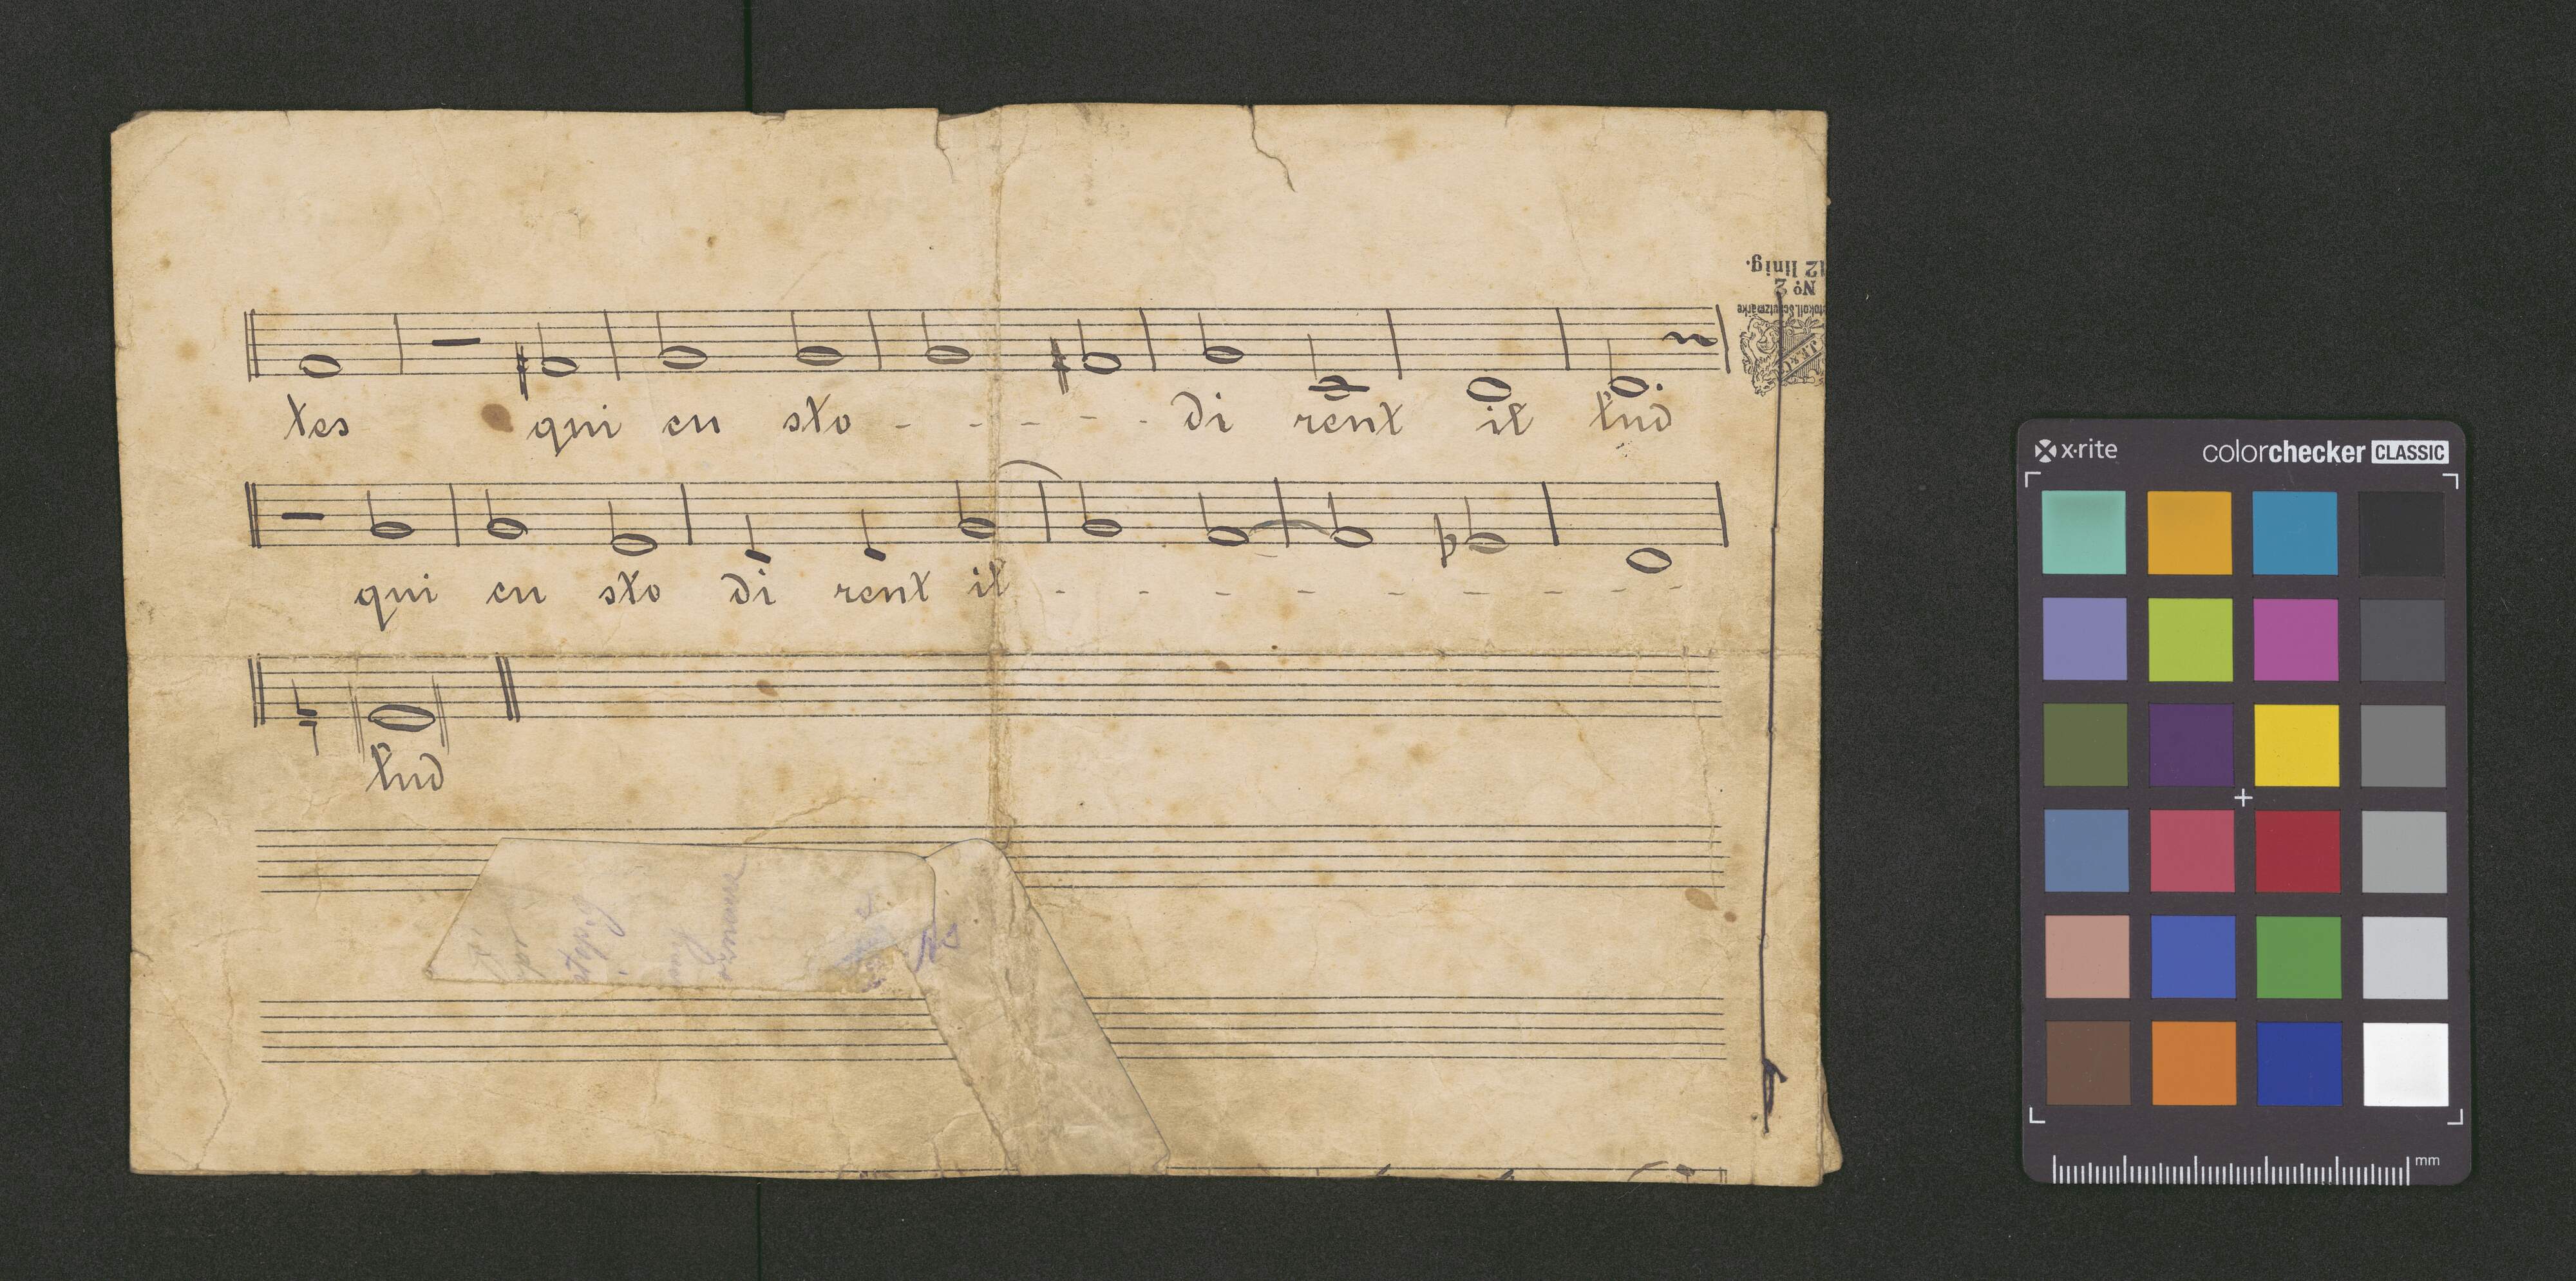 tes qui cu sto - - - - di rent il lud
qui cu sto di rent il - - - - - - - - -
lud
No 2
12 linig.
J.E.&C
x·rite
colorchecker CLASSIC
mm